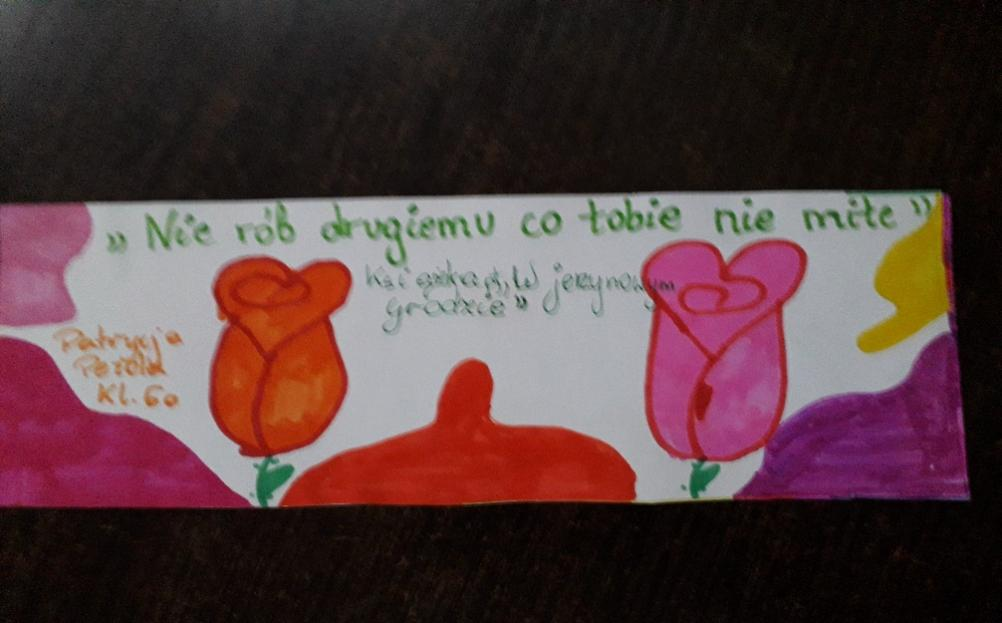 „Nie rób drugiemu co tobie nie miłe”
Książka pt. „W jeżynowym
grodzie”
Patrycja
Perola
Kl. 6a